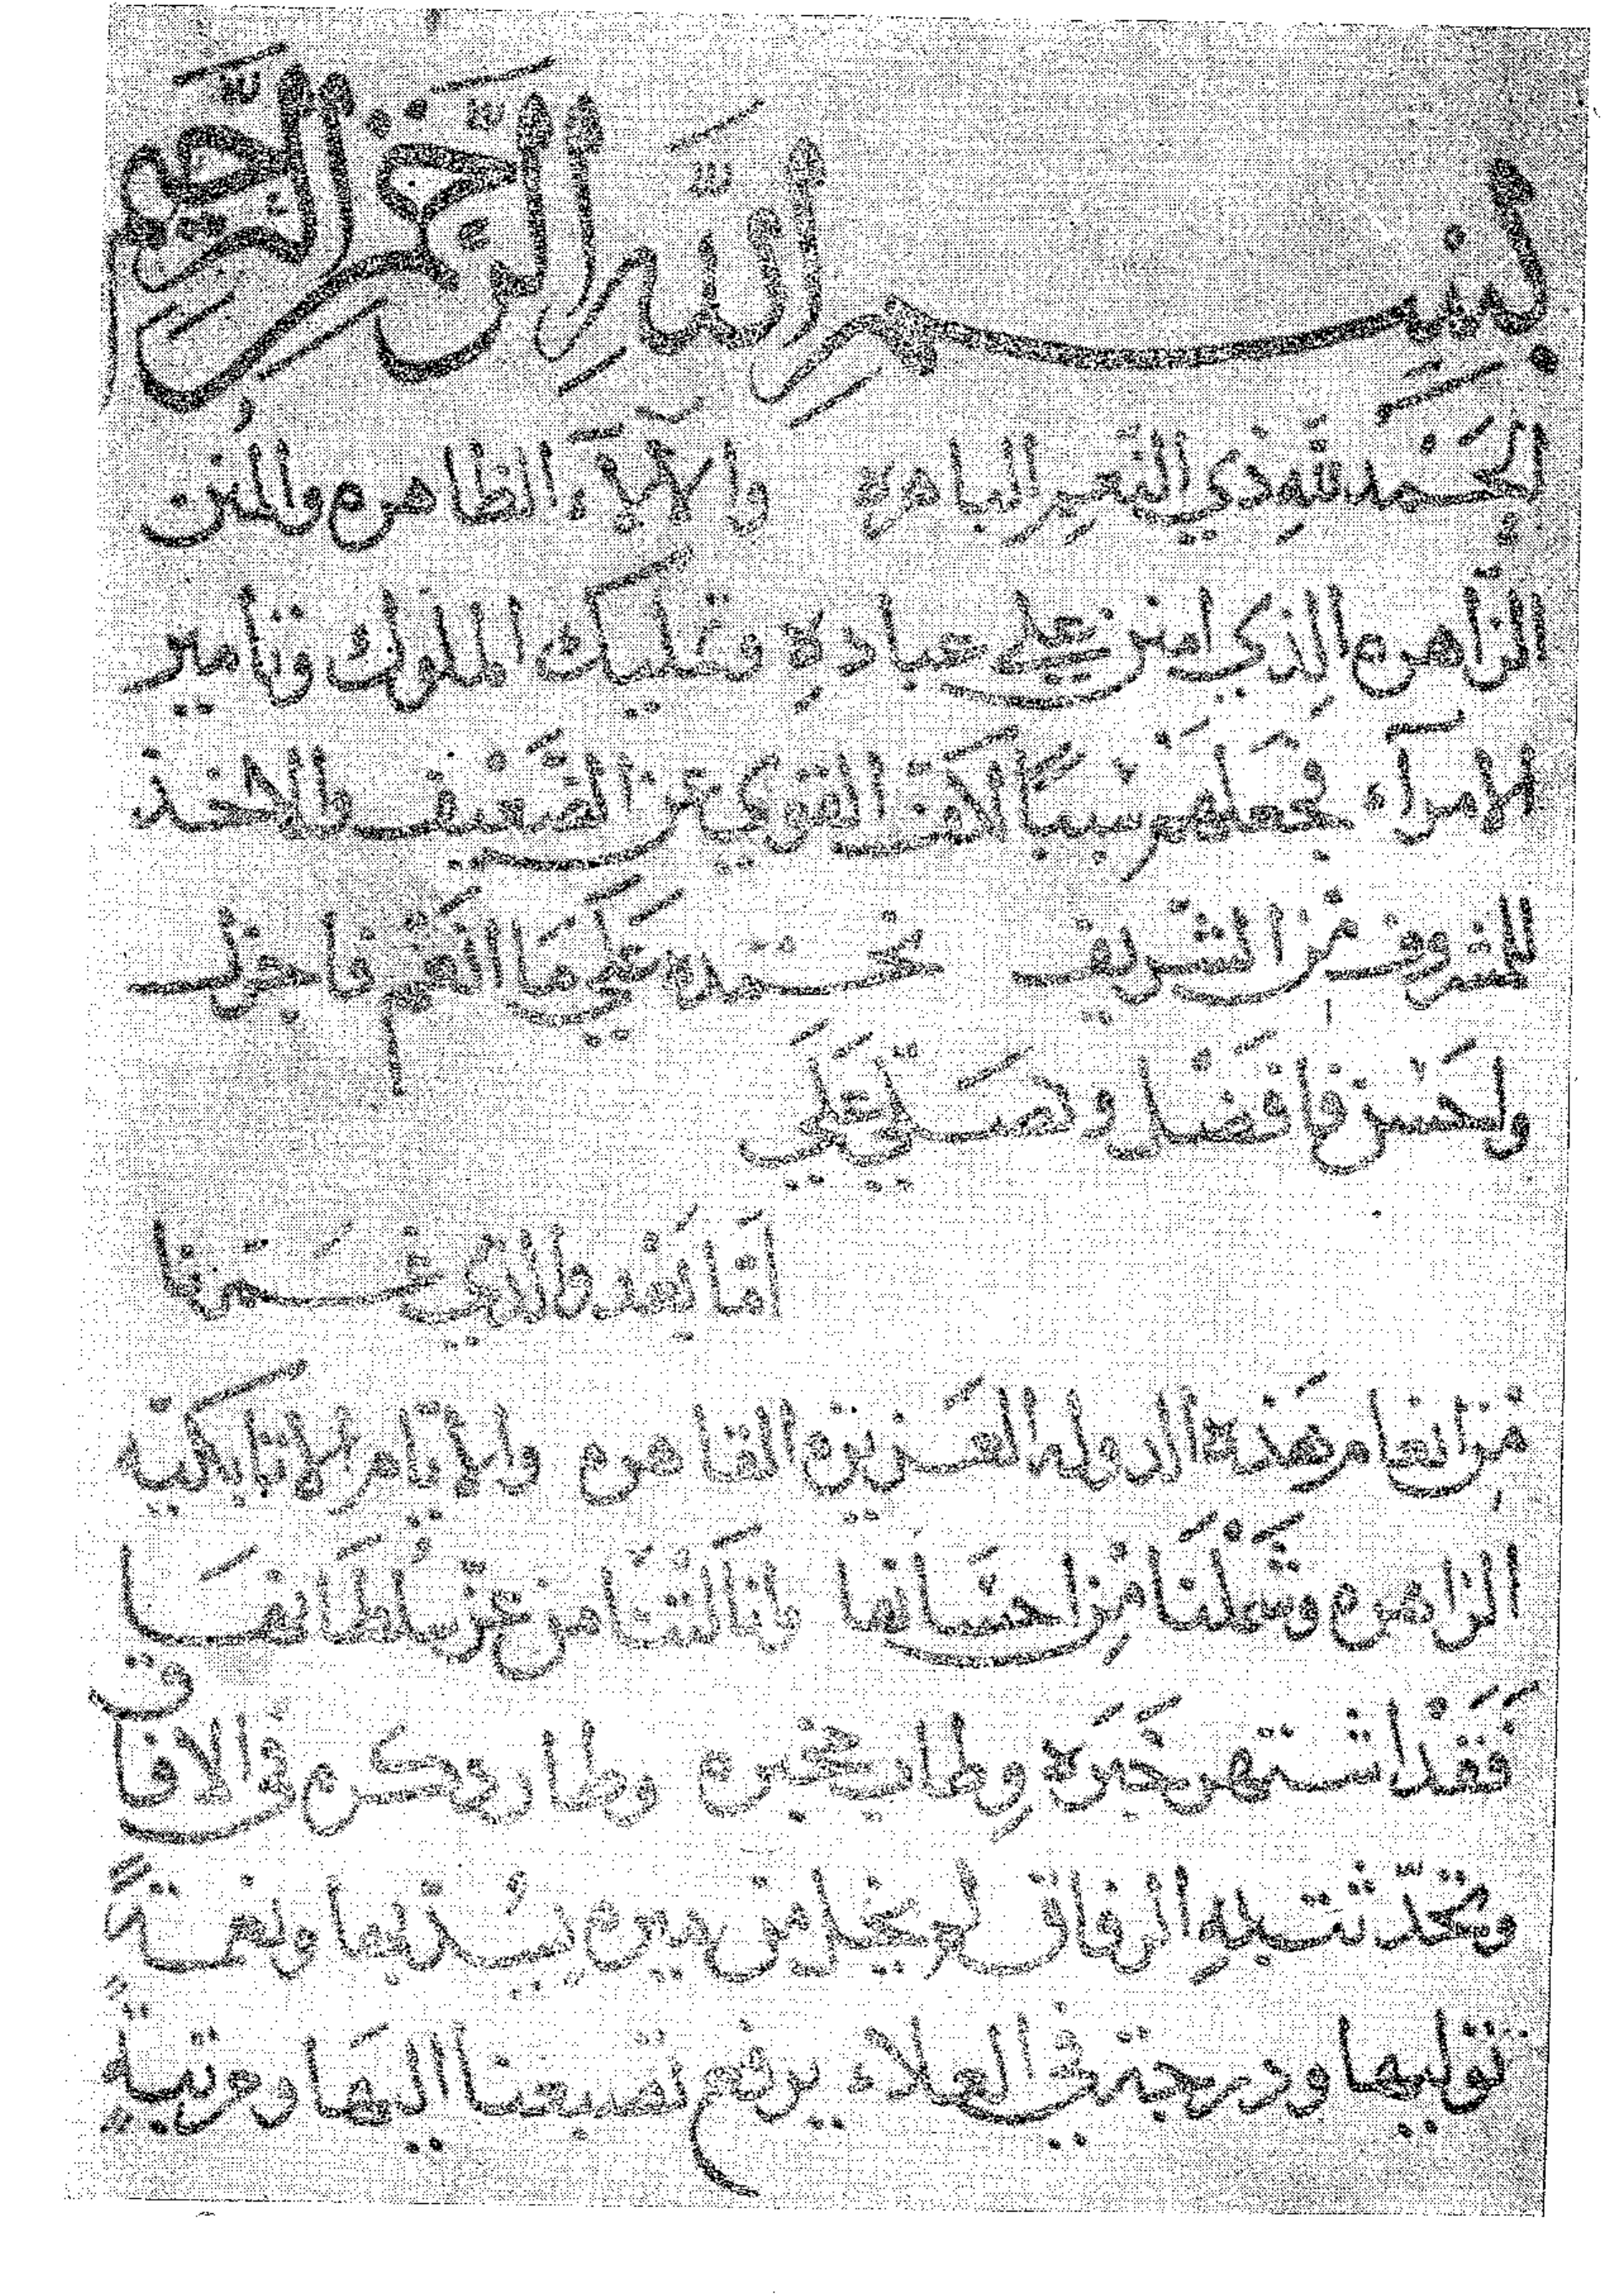 بسم الله الرحمن الرحيم
الحمد لله ذي النعم الباهرة والآلاء الظاهرة والمنن
الزاهرة الذي امتن على عباده بتمليك الملوك وتأمير
الامرآء فجعلهم سببًا لاخذ القوي عن الضعيف والاخذ
للمشروف من الشريف نحمده على ما انعم فاجزل
واحسن فافضل ونصلي على
اما بعد فالذي غمرنا
من انعام هذه الدولة العزيزة القاهرة والايام الاتابكية
الزاهرة وشملنا من احسانها وانالتنا من عز سلطانها
فقد اشتهر خبره وطاب مخبره وطار ذكره في الافاق
وتحدثت به الرفاق لم يخل من ميرة يسديها ونعمةً
توليها ودرجة في العلاء يرفع بضبعنا اليها ومرتبة